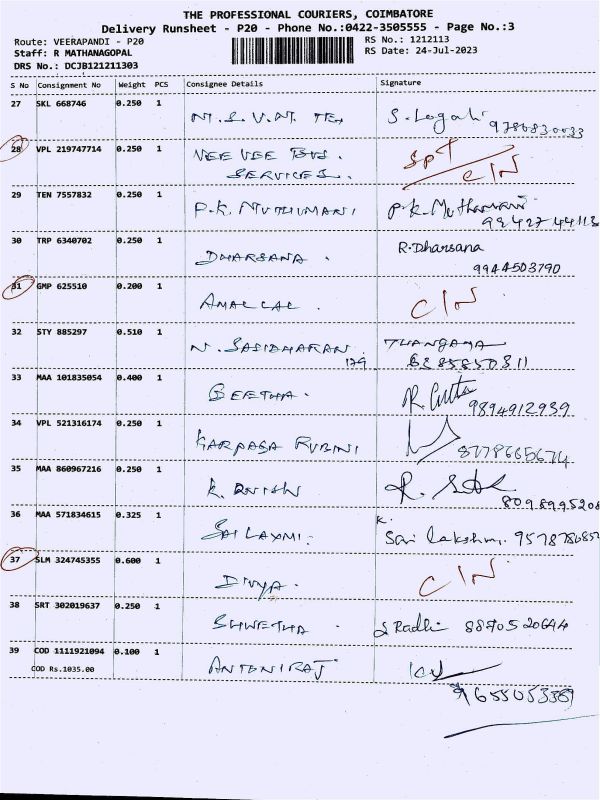 THE PROFESSIONAL COURIERS, COIMBATORE
Delivery Runsheet - P20 - Phone No.:0422-3505555 - Page No.:3
Route: VEERAPANDI - P20
RS No.: 1212113
Staff: R MATHANAGOPAL
RS Date: 24-Jul-2023
DRS No.: DCJB121211303
S No Consignment No Weight PCS Consignee Details Signature
27 SKL 668746 0.250 1
28 VPL 219747714 0.250 1 VEE VEE BUS.
SERVICES.
C/N
29 TEN 7557832 0.250 1 P.K. MUTHUMANI P.K. Muthumani
30 TRP 6340702 0.250 1 DHARSANA. R.Dharsana
9944503790
31 GMP 625510 0.200 1 AMALLAL. C/N
32 STY 885297 0.510 1 N. SASIDHARAN
33 MAA 101835054 0.400 1 GEETHA.
9894912939
34 VPL 521316174 0.250 1 KARPAGA RUBINI
8778665674
35 MAA 860967216 0.250 1 K.
36 MAA 571834615 0.325 1 SAI LAXMI. K. Sai Lakshmi
37 SLM 324745355 0.600 1 DIVYA. C/N
38 SRT 302019637 0.250 1 SHWETHA. S Radhi 8870520644
39 COD 1111921094 0.100 1 ANTENIRAJ
COD Rs.1035.00